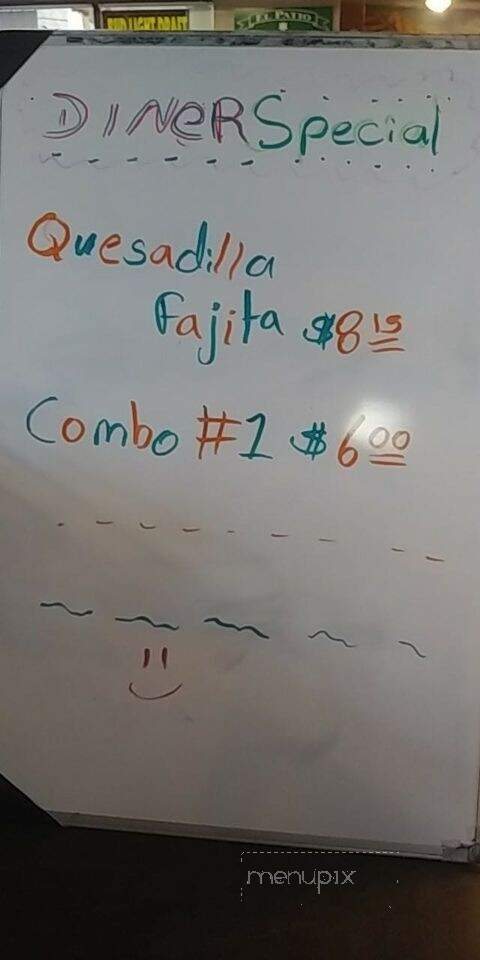 BUD LIGHT DRAFT
EL PATIO
DINER Special
Quesadilla
Fajita $8 15
Combo #1 $6 00
menupix